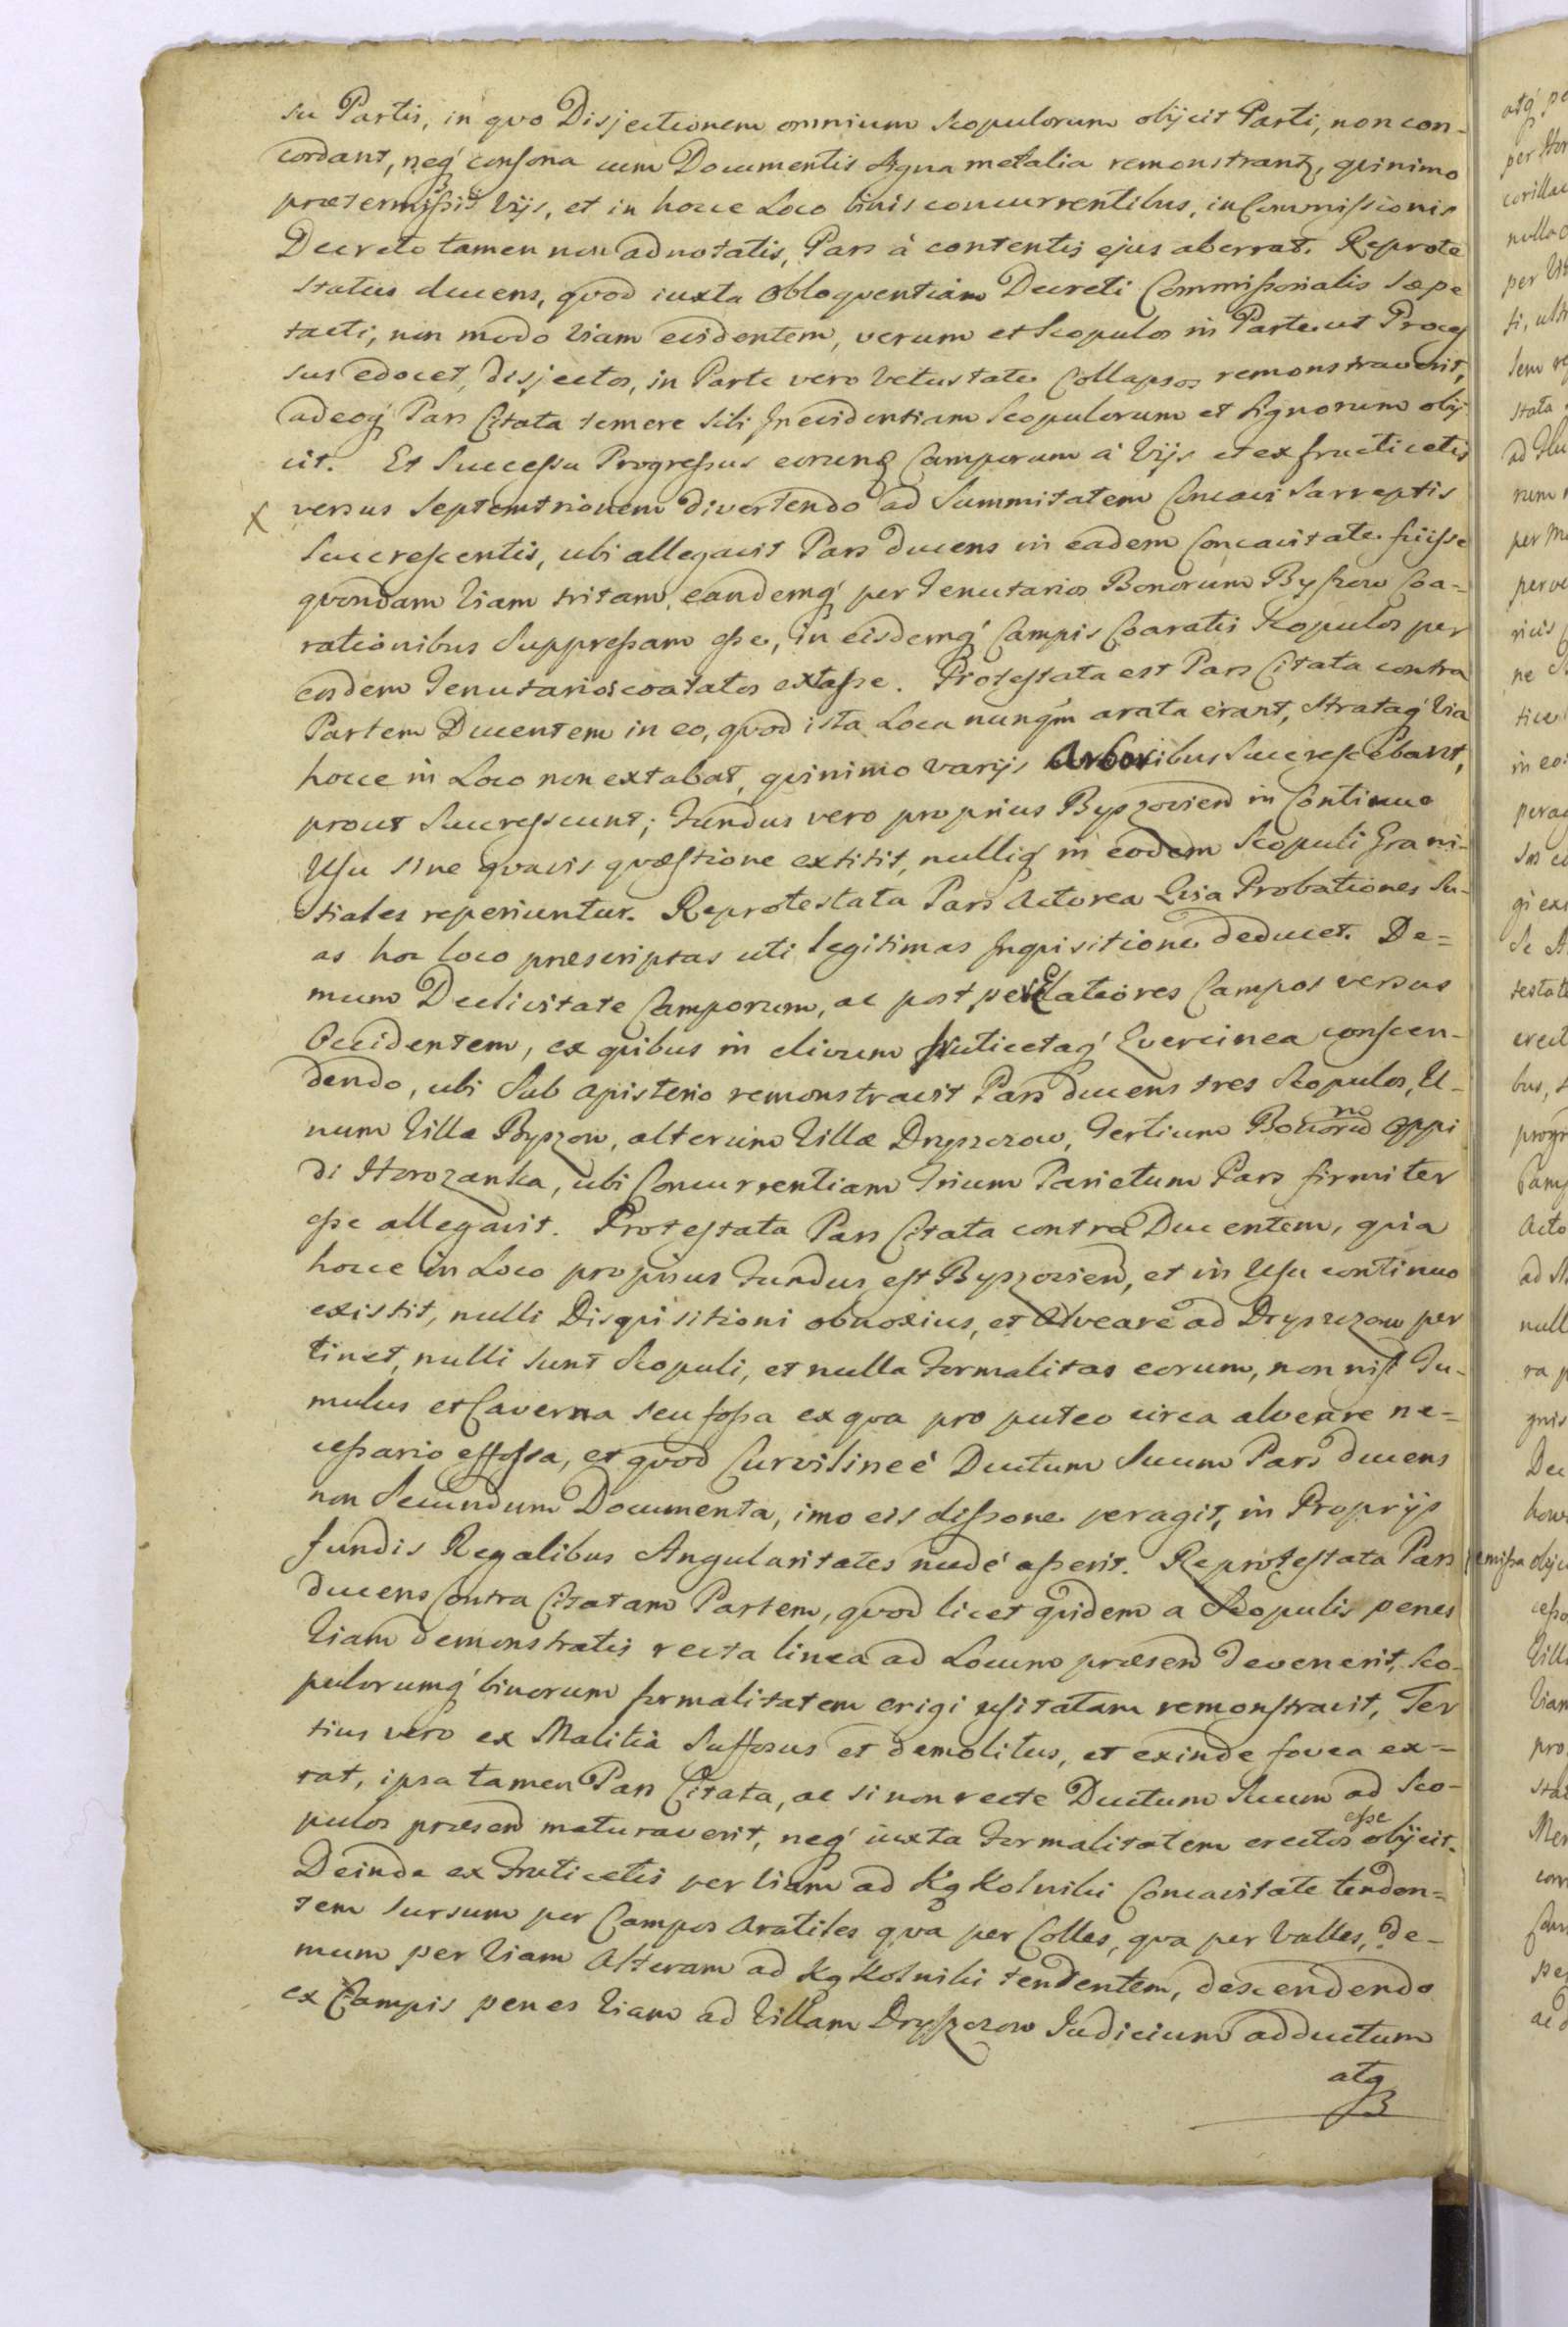 su Partis, in qvo Disjectionem omnium Scopulorum objicit Parti, non con-
cordant, neq́ consona cum Documentis Signa metalia remonstrantꝛ, qvinimo
prætermissis Vijs, et in hocce Loco binis concurrentibus, in Commissionis
Decreto tamen non adnotatis, Pars à contentis ejus aberrat. Reprote
status ducens, qvod iuxta Obloqventiam Decreti Commissorialis Sæpe
tacti, non modo Viam evidentem, verum et Scopulos in Parte ut Proces
sus edocet, disjectos, in Parte vero Vetustate Collapsos remonstraverit,
adeoq́ Pars Citata temere Sibi Inevidentiam Scopulorum et Signorum obji
cit. Et Successu Progressus eorunḍ Camporum à Vijs et ex fructicetis
X versus Septemtrionem divertendo ad Summitatem Concavi Sarreptis
Succrescentis, ubi allegavit Pars ducens in eadem Concavitate fuisse
qvondam Viam tritam, eandemq́ per Tenutarios Bonorum Byszow Coa-
rationibus Suppressam esse, in eisdemq́ Campis Coaratis Scopulos per
eosdem Tenutarios coaratos extasse. Protestata est Pars Citata contra
Partem Ducentem in eo, qvod ista Loca nunq́m arata erant, Strataq́ Via
hocce in Loco non extabat, qvinimo varijs Arboribus Succrescebant,
prout Succrescunt; Fundus vero proprius Byszovien in Continuo
Usu sine qvavis qvæstione extitit, nulliq́ in eodem Scopuli Grani-
tiales reperiuntur. Reprotestata Pars Actorea Qvia Probationes Su-
as hoc loco præscriptas uti legitimas Inqvisitione deducet. De=
mum Declivitate Camporum, ac post Campos versus
Occidentem, ex qvibus in clivum fruticetaq́ Qvercinea conscen-
dendo, ubi Sub apisterio remonstravit Pars ducens tres Scopulos, U-
num Villæ Byszow, alterum Villæ Dryszczow, Tertium Bonorū Oppi
di Horozanka, ubi Concurrentiam Trium Parietum Pars firmiter
esse allegavit. Protestata Pars Citata contra Ducentem, qvia
hocce in Loco proprius Fundus est Byszovien, et in Usu continuo
existit, nulli Disqvisitioni obnoxius, et Alveare ad Dryszczow per
tinet, nulli sunt Scopuli, et nulla Formalitas eorum, non nisi Tu-
mulus et Caverna seu fossa ex qva pro puteo circa alveare ne=
cessario effossa, et qvod Curvilineé Ductum Suum Pars ducens
non Secundum Documenta, imo eis dissone peragit, in Proprijs
fundis Regalibus Angularitates nudé asserit. Reprotestata Pars
ducens Contra Citatam Partem, qvod licet qvidem a Scopulis penes
Viam demonstratis recta linea ad Locum præsen devenerit, Sco-
pulorumq́ binorum formalitatem erigi usitatam remonstravit, Ter
tius vero ex Malitia Suffosus et demolitus, et exinde fovea ex-
tat, ipsa tamen Pars Citata, ac si non recte Ductum Suum ad Sco-
pulos præsen maturaverit, neq́ iuxta Formalitatem erectos esse objicit.
Deinde ex Fruticetis per Viam ad Kąkolniki Concavitate tenden=
tem sursum per Campos Aratiles qva per Colles, qva per Valles, de-
mum per Viam Alteram ad Kąkolniki tendentem, descendendo
ex Campis penes Viam ad Villam Dryszczow Judicium adductum
atq